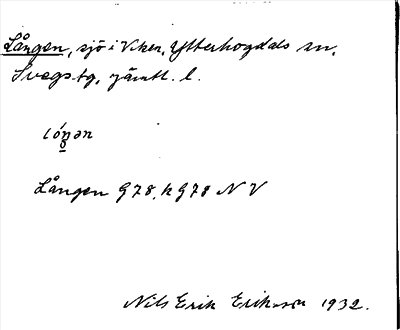 Lången, sjö i Viken, Ytterhogdals sn,
Svegs tg, jämtl. l.
lóŋən
Lången G78, k G78 NV
Nils Erik Eriksson 1932.